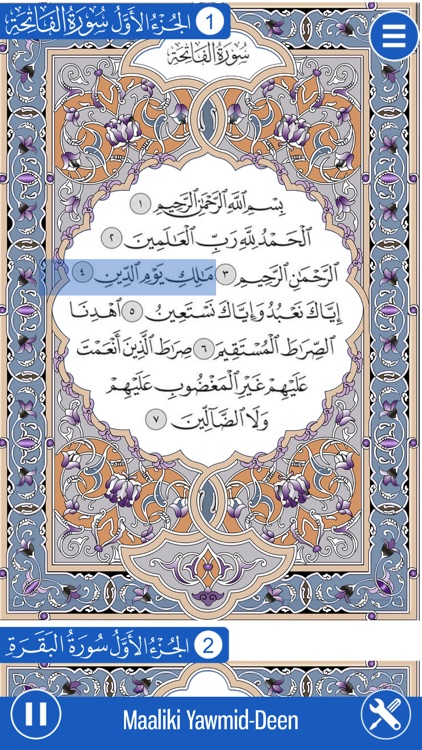 الجُزءُ الأَوَّلُ سُورَةُ الفَاتِحَة 1
سُورَةُ الفَاتِحَة
بِسْمِ ٱللَّهِ ٱلرَّحْمَٰنِ ٱلرَّحِيمِ ١
ٱلْحَمْدُ لِلَّهِ رَبِّ ٱلْعَٰلَمِينَ ٢
ٱلرَّحْمَٰنِ ٱلرَّحِيمِ ٣ مَٰلِكِ يَوْمِ ٱلدِّينِ ٤
إِيَّاكَ نَعْبُدُ وَإِيَّاكَ نَسْتَعِينُ ٥ ٱهْدِنَا
ٱلصِّرَٰطَ ٱلْمُسْتَقِيمَ ٦ صِرَٰطَ ٱلَّذِينَ أَنْعَمْتَ
عَلَيْهِمْ غَيْرِ ٱلْمَغْضُوبِ عَلَيْهِمْ
وَلَا ٱلضَّآلِّينَ ٧
الجُزءُ الأَوَّلُ سُورَةُ البَقَرَة 2
Maaliki Yawmid-Deen